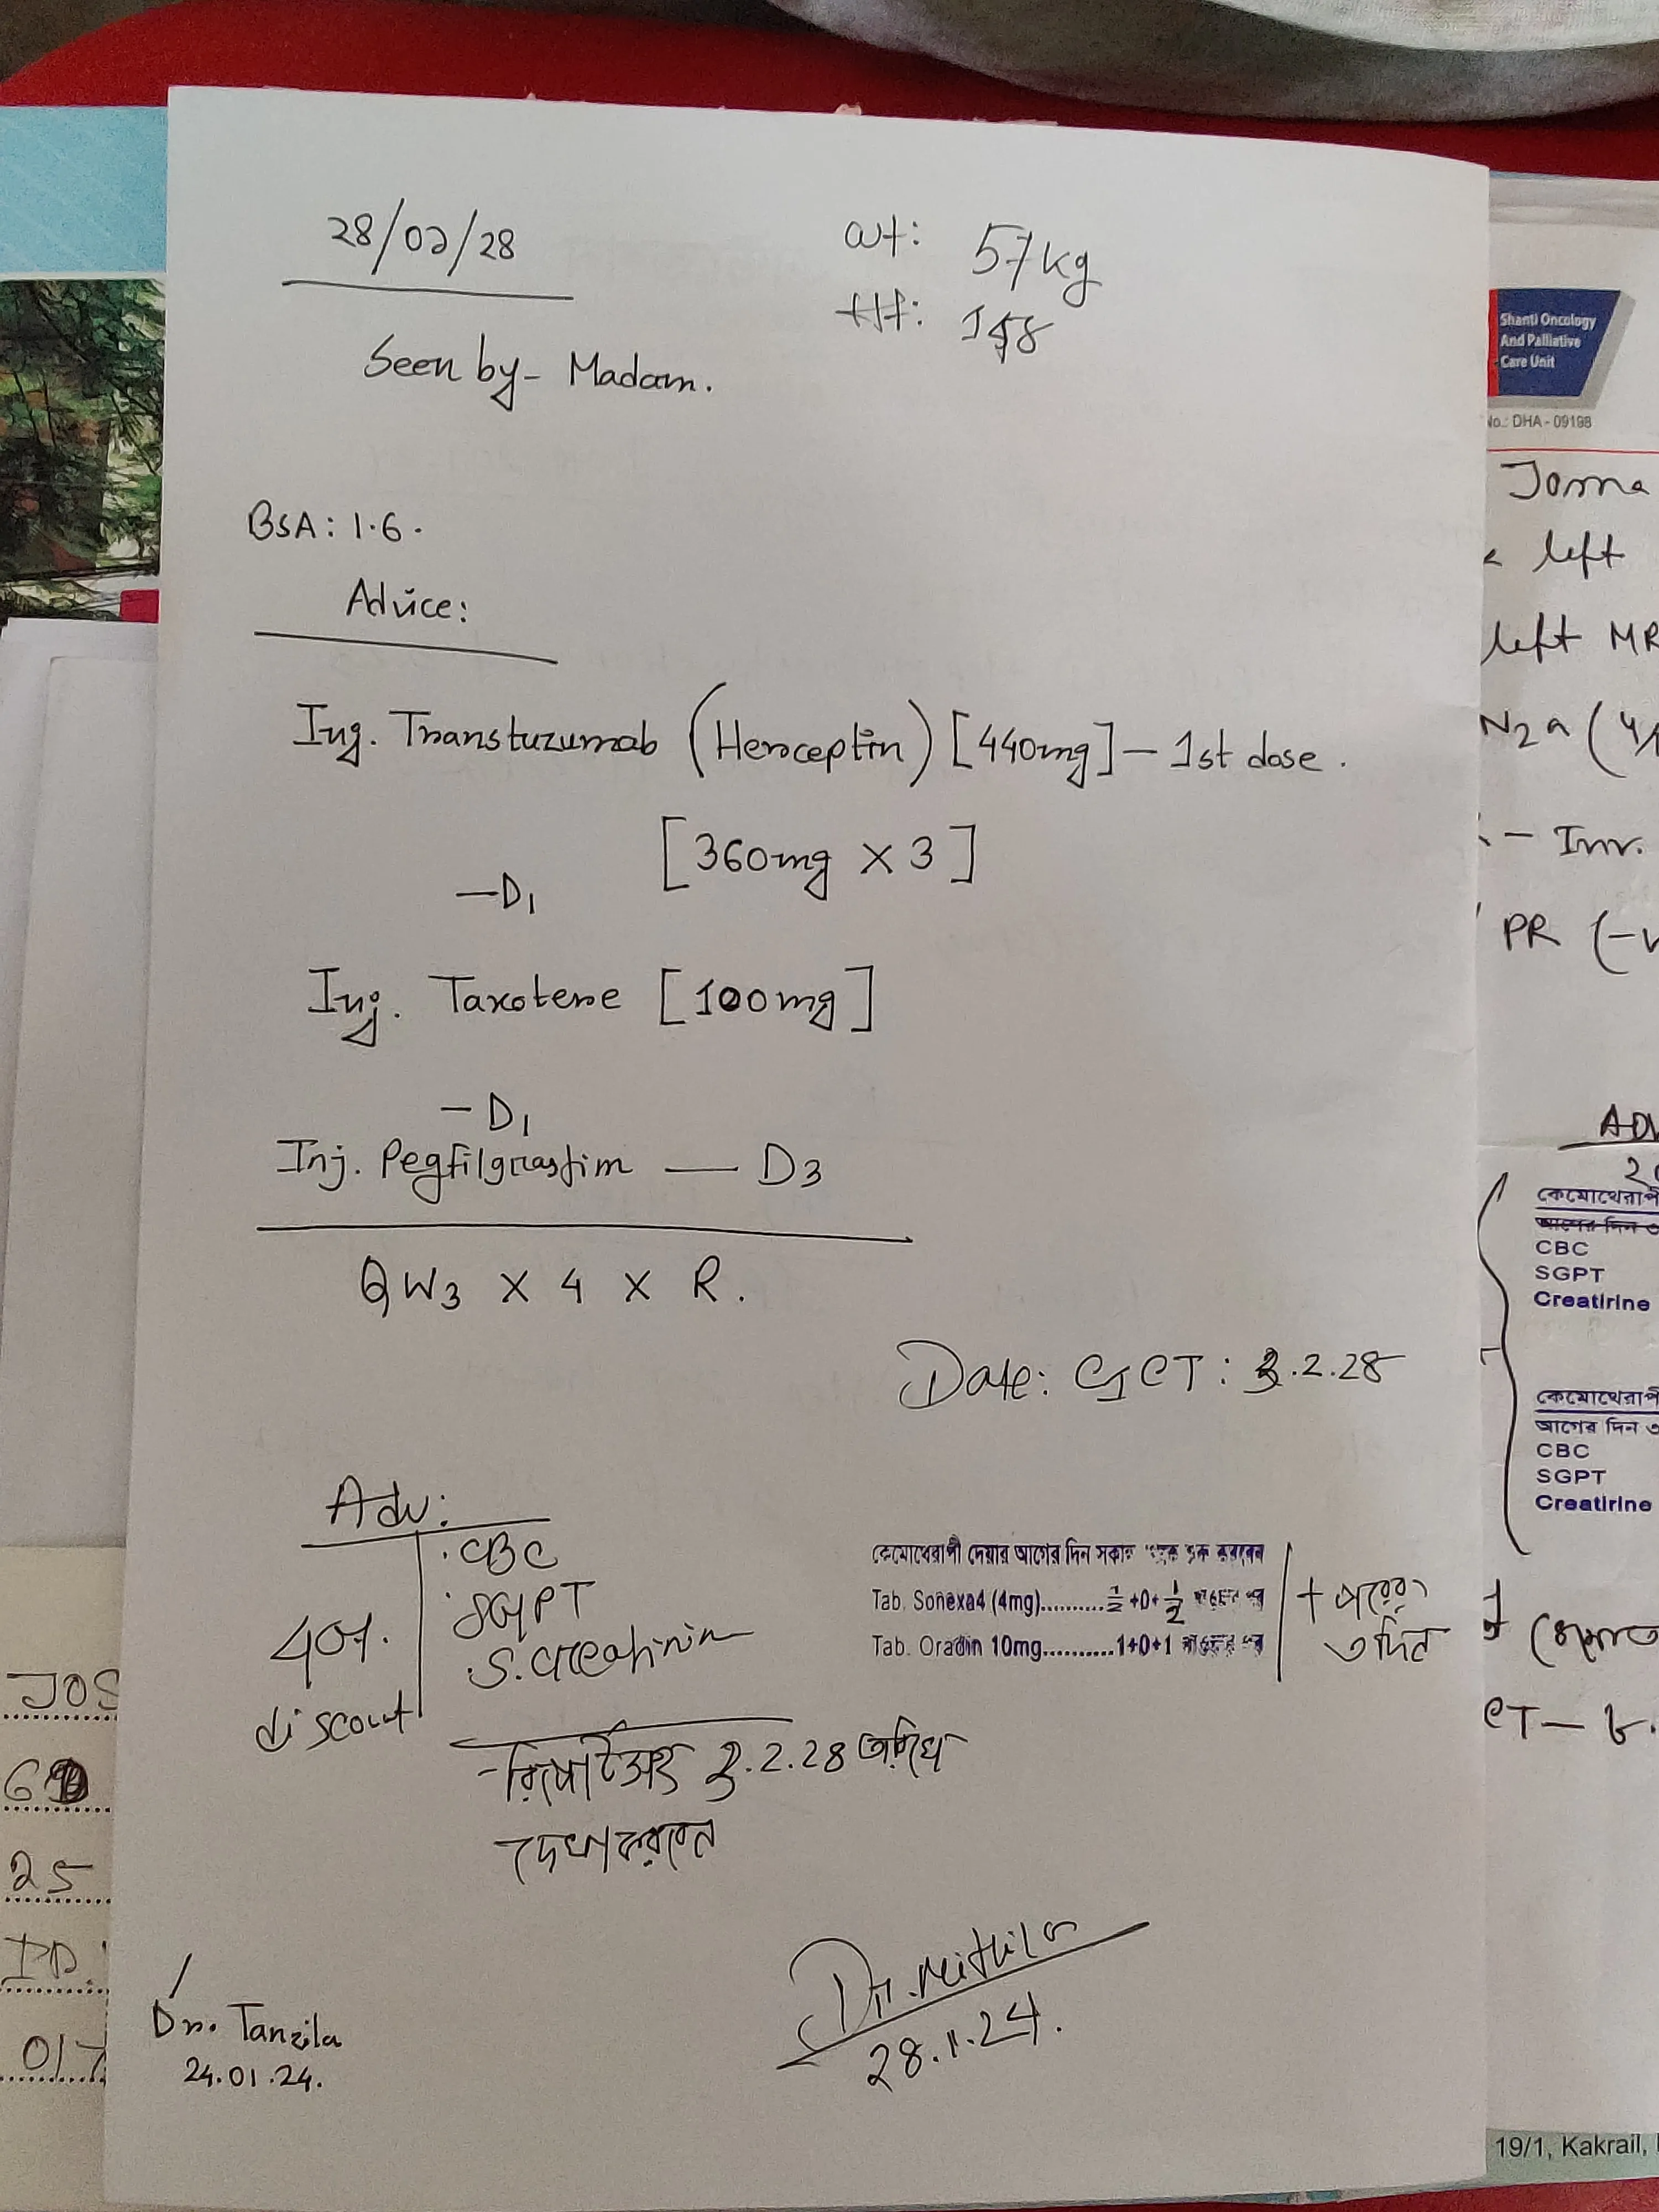 ২৪/০১/২৪
wt: 57kg
Ht: 158
Seen by- Madam.
BSA: 1.6.
Advice:
Inj. Transtuzumab (Herceptin) [440mg] - 1st dose.
[360mg × 3]
-D1
Inj. Taxotere [100mg]
-D1
Inj. Pegfilgrastim — D3
QW3 × 4 × R.
Date: C1CT: 3.2.28
Adv:
.CBC
.SGPT
.S. Creatinin
40%
discout
কেমোথেরাপী দেয়ার আগের দিন সকাল থেকে শুরু করবেন
Tab. Sonexa4 (4mg)..........½+0+½
Tab. Oradin 10mg..........1+0+1
+ পরের
৩ দিন
- রিপোর্টসহ 3.2.28 তারিখ
দেখা করবেন
Dr. Tanzila
24.01.24.
Dr. Mithila
28.1.24.
Shanti Oncology
And Palliative
Care Unit
No.: DHA - 09198
Josna
left
left MR
N2a (4/
- Inv.
PR (-v
ADV
কেমোথেরাপী
CBC
SGPT
Creatirine
কেমোথেরাপী
আগের দিন
CBC
SGPT
Creatirine
CT -
19/1, Kakrail,
JOS
25
ID:
017